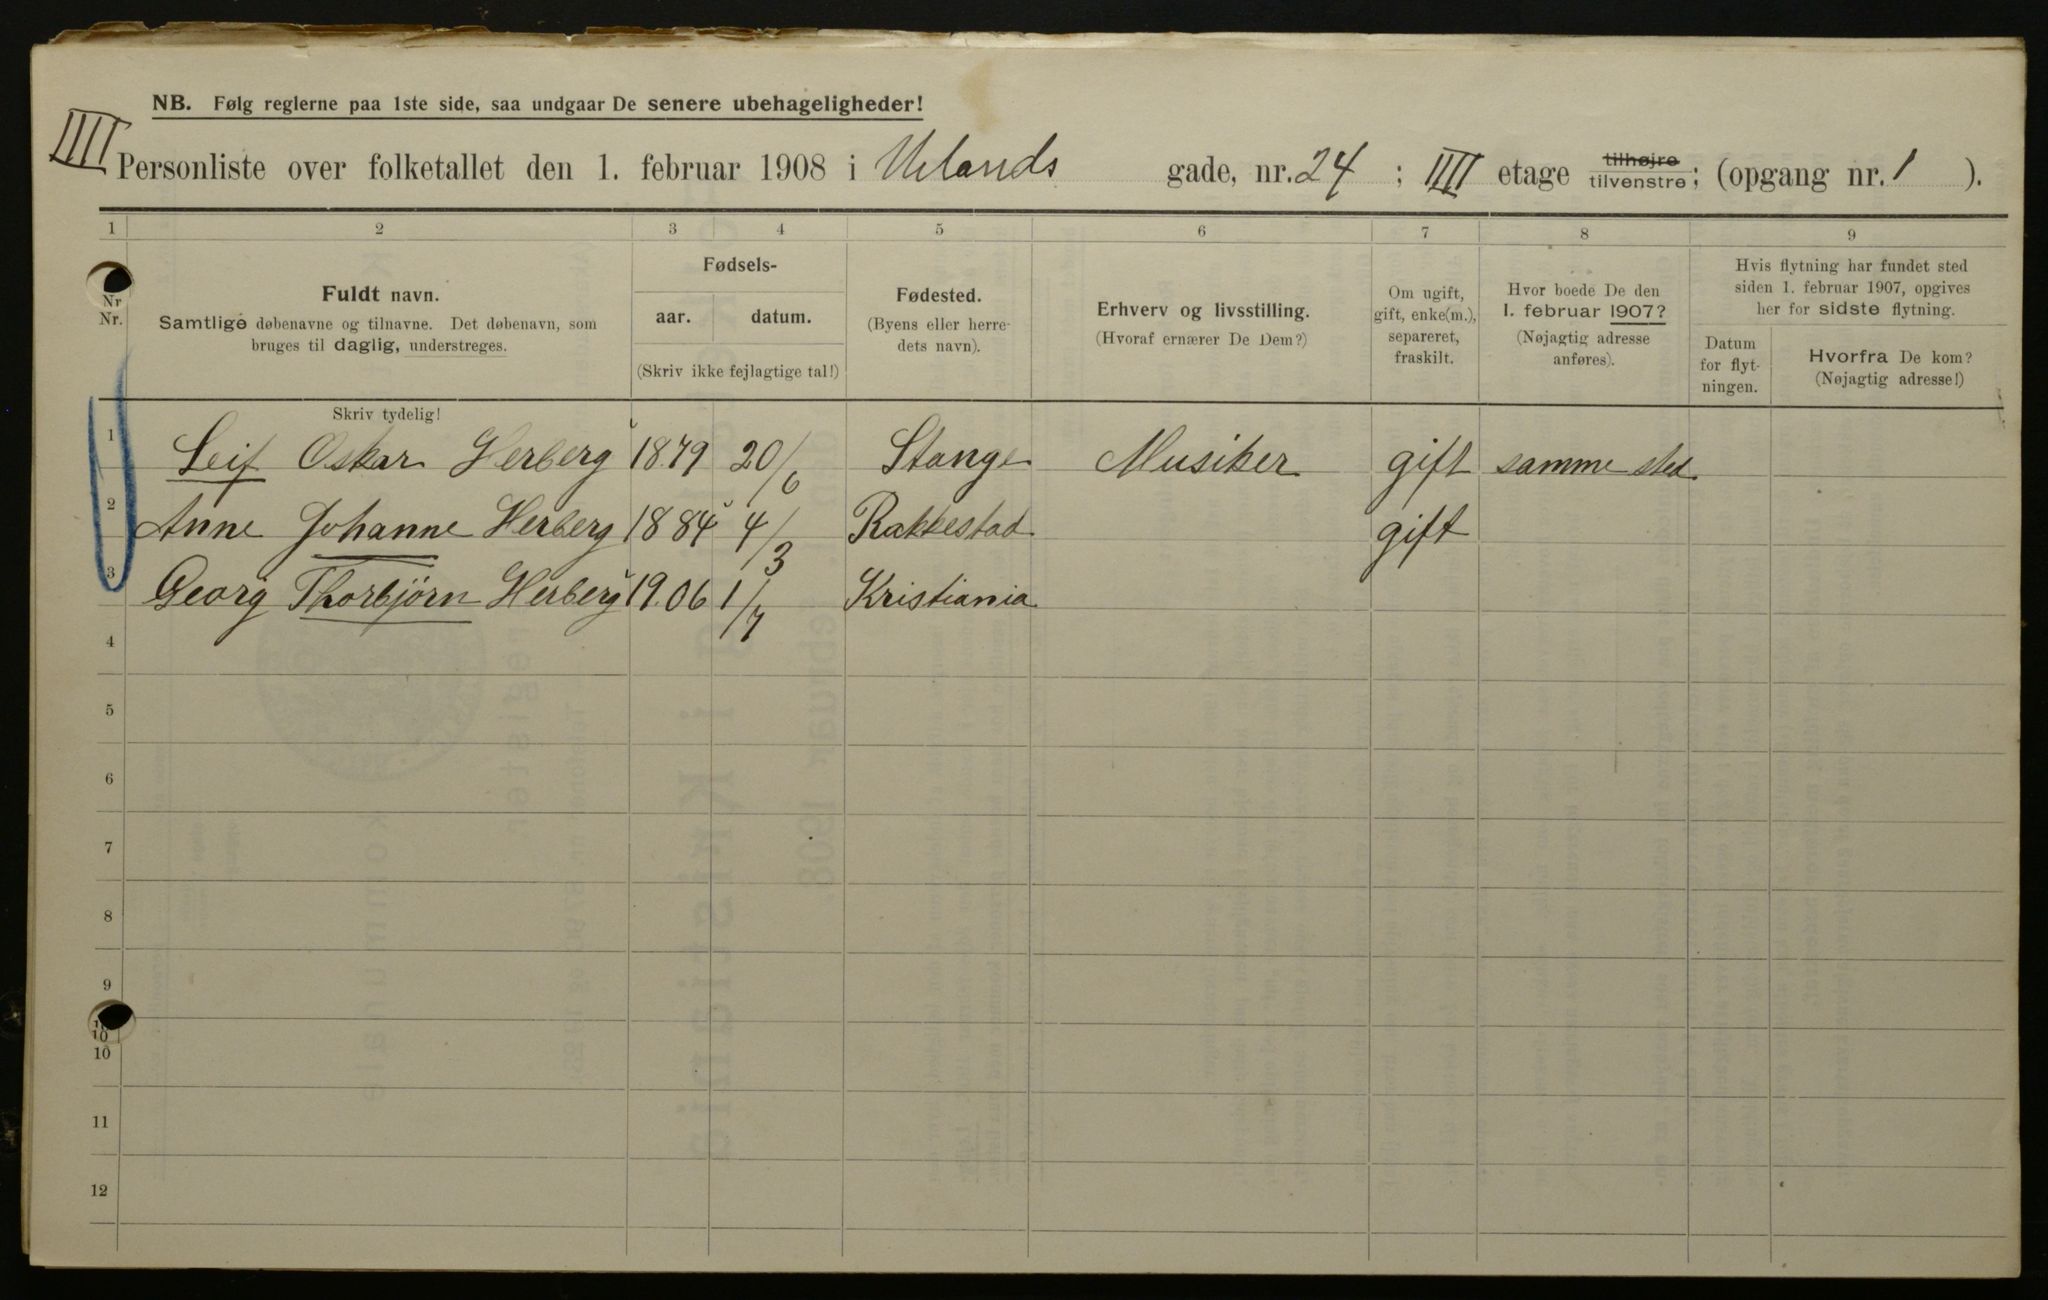 NB. Følg reglerne paa 1ste side, saa undgaar De senere ubehageligheder!
IIII
Personliste over folketallet den 1. februar 1908 i Uelands gade, nr. 24 ; IIII etage tilhøjre tilvenstre; (opgang nr. 1 ).
1 2 3 4 5 6 7 8 9
Nr Nr.
Fuldt navn.
Samtlige døbenavne og tilnavne. Det døbenavn, som
bruges til daglig, understreges.
Fødsels-
aar. datum.
(Skriv ikke fejlagtige tal!)
Fødested.
(Byens eller herre-
dets navn).
Erhverv og livsstilling.
(Hvoraf ernærer De Dem?)
Om ugift,
gift, enke(m.),
separeret,
fraskilt.
Hvor boede De den
1. februar 1907?
(Nøjagtig adresse
anføres).
Hvis flytning har fundet sted
siden 1. februar 1907, opgives
her for sidste flytning.
Datum
for flyt-
ningen.
Hvorfra De kom?
(Nøjagtig adresse!)
Skriv tydelig!
1 Leif Oskar Herberg 1879 20/6 Stange Musiker gift samme sted
2 Anne Johanne Herberg 1884 4/3 Rakkestad gift
3 Georg Thorbjørn Herberg 1906 1/7 Kristiania
4
5
6
7
8
9
10
10
11
12